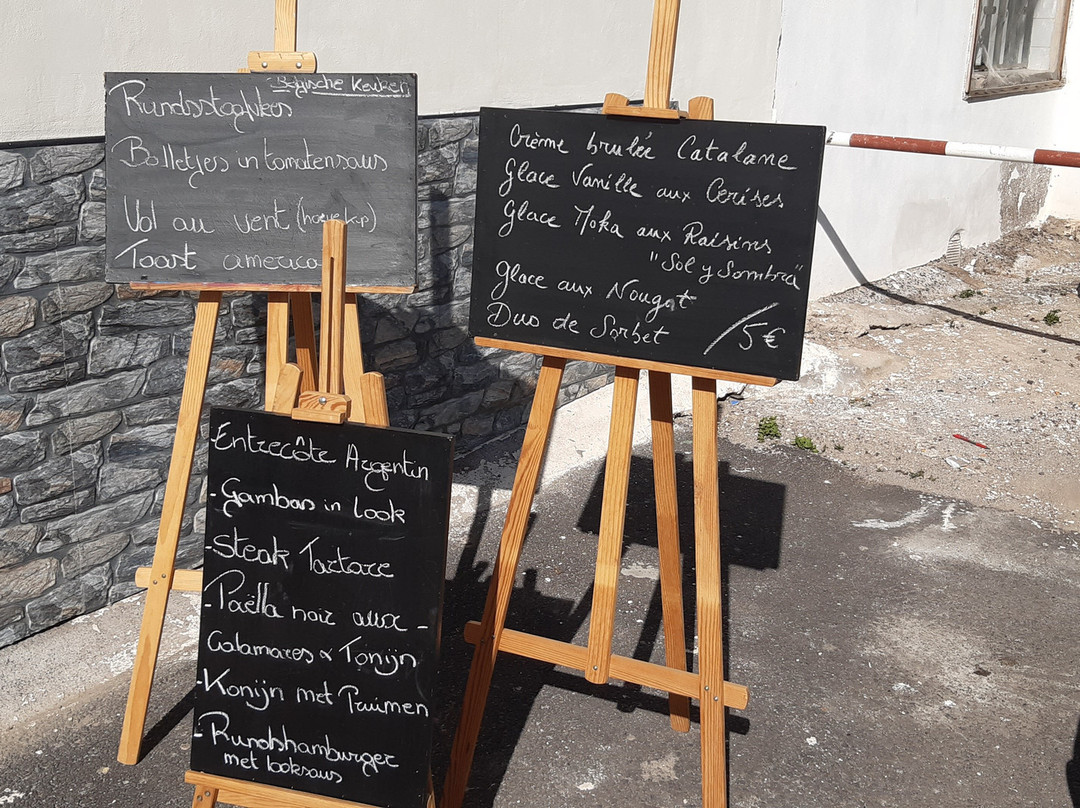 Belgische Keuken
Rundsstooflees
Balletjes in tomatensaus
Vol au vent
Toast america
Crème brulée Catalane
Glace Vanille aux Cerises
Glace Moka aux Raisins
"Sol y Sombra"
Glace aux Nougat
Duo de Sorbet
/5€
-Entrecôte Argentin
-Gambas in look
-Steak Tartare
-Paëlla noir aux -
Calamares & Tonijn
-Konijn met Pruimen
-Rundshamburger
met looksaus